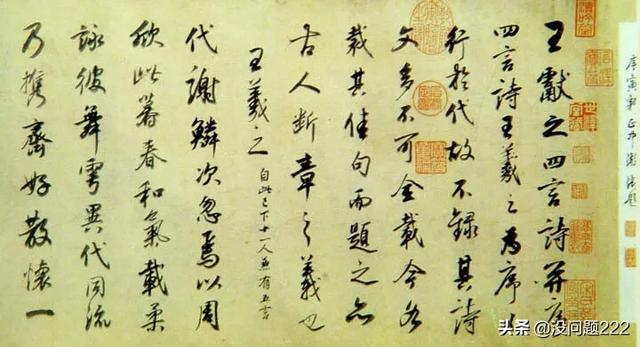 王獻之四言詩并序
四言詩王羲之為序
行於代故不錄其詩
文多不可全載今各
裁其佳句而題之亦
古人斷章之義也
王羲之 自此已下十一人並有五言
代謝鱗次忽焉以周
欣此暮春和氣載柔
詠彼舞雩異代同流
乃攜齊好散懷一
头条 @没问题222